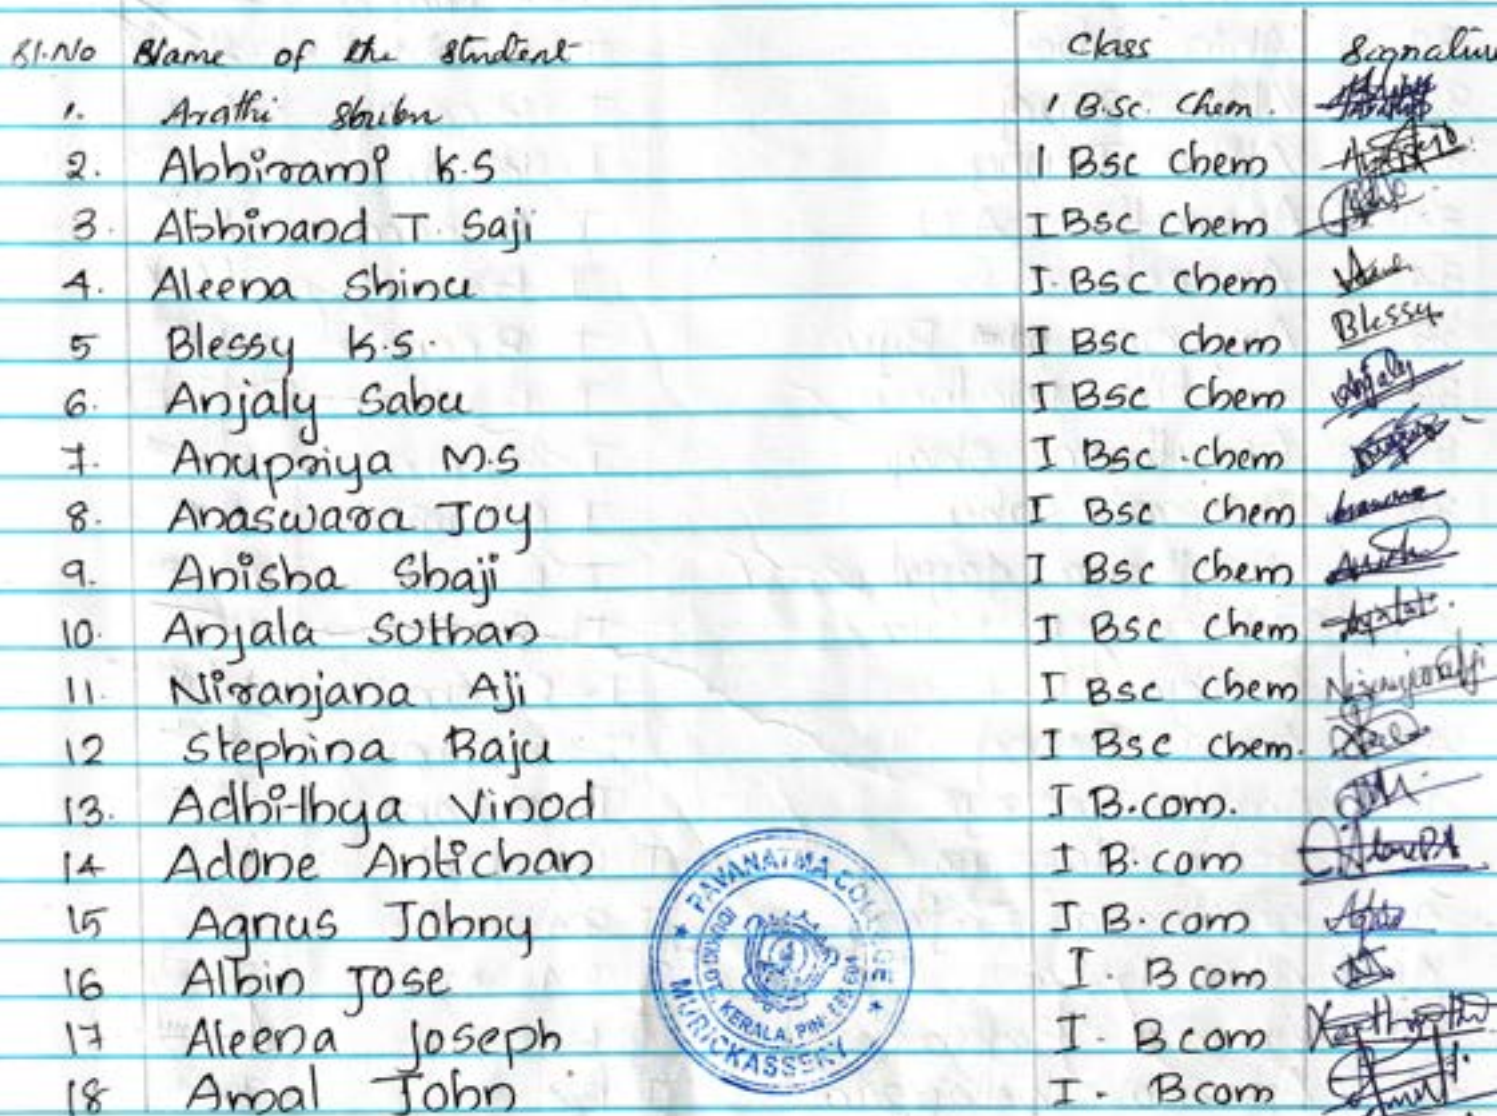 Sl.No Name of the Student Class Signature
1. Arathi Shibu I B.Sc. Chem.
2. Abhirami K.S I Bsc Chem
3. Abhinand T. Saji I Bsc Chem
4. Aleena Shinu I. Bsc Chem
5 Blessy K.S. I Bsc Chem Blessy
6. Anjaly Sabu I Bsc Chem Anjaly
7. Anupriya M.S I Bsc . chem
8. Anaswara Joy I Bsc Chem
9. Anisha Shaji I Bsc Chem
10. Anjala Suthan I Bsc Chem
11. Niranjana Aji I Bsc Chem
12 Stephina Raju I Bsc Chem.
13. Adhithya Vinod I B.com.
14 Adone Antichan I B. com
15 Agnus Johny I B. com
16 Albin Jose I. B com
17 Aleena Joseph I. B com
18 Amal John I. B com
PAVANATMA COLLEGE
IDUKKI DT. KERALA, PIN-
MURICKASSERY